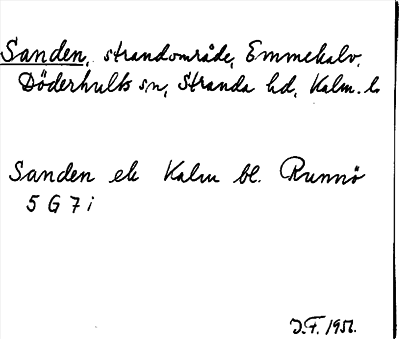 Sanden, strandområde, Emmekalv,
Döderhults sn, Stranda hd, Kalm. l.
Sanden ek Kalm bl. Runnö
5 G 7 i
J.F. 1956.